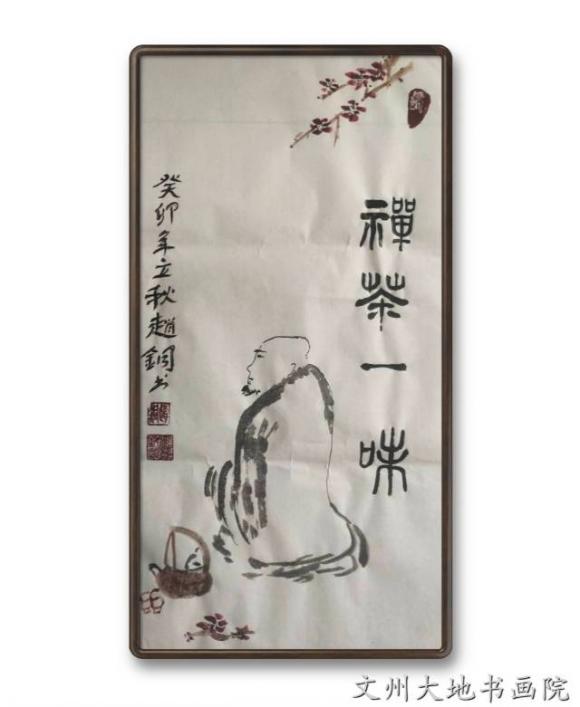 禪茶一味
癸卯年立秋趙鋼书
文州大地书画院